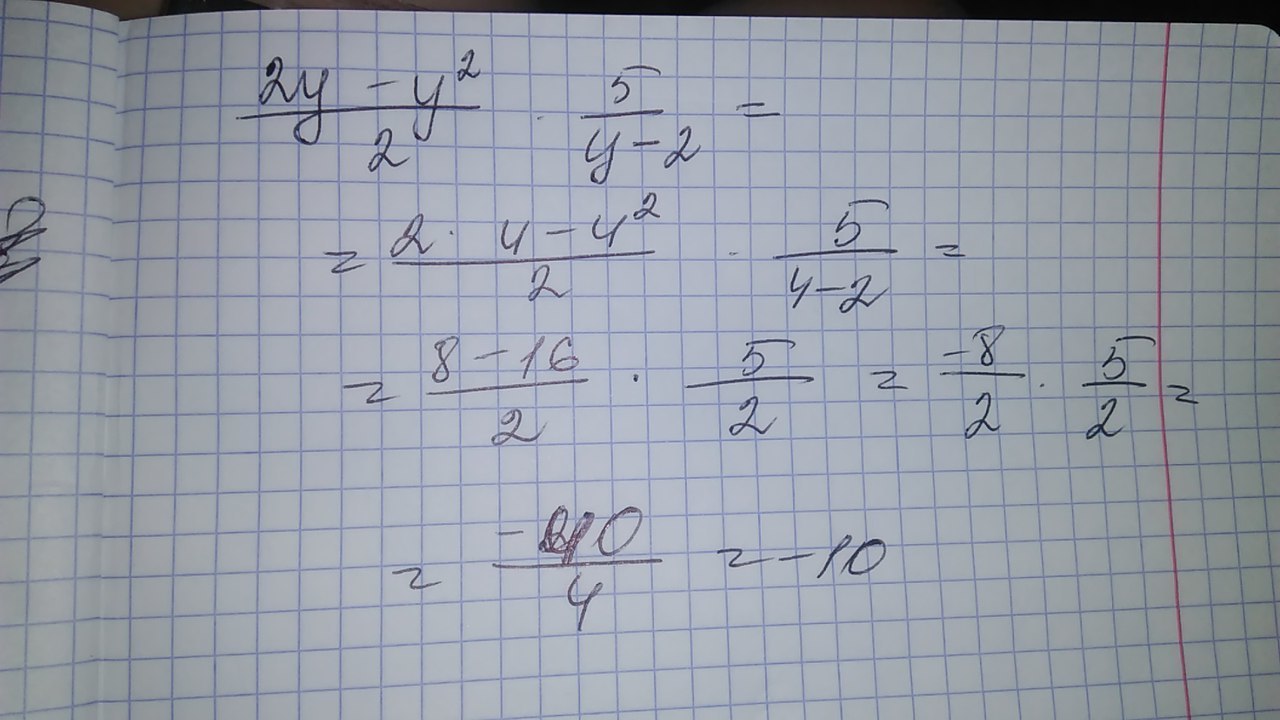 (2y - y²)/2 · 5/(y - 2) =
= (2 · 4 - 4²)/2 · 5/(4 - 2) =
= (8 - 16)/2 · 5/2 = -8/2 · 5/2 =
= -40/4 = -10